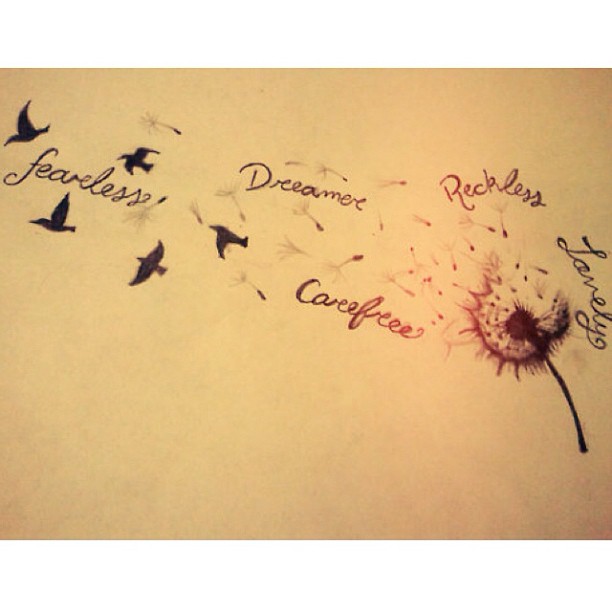 fearless,
Dreamer
Reckless
Carefree
Lovely